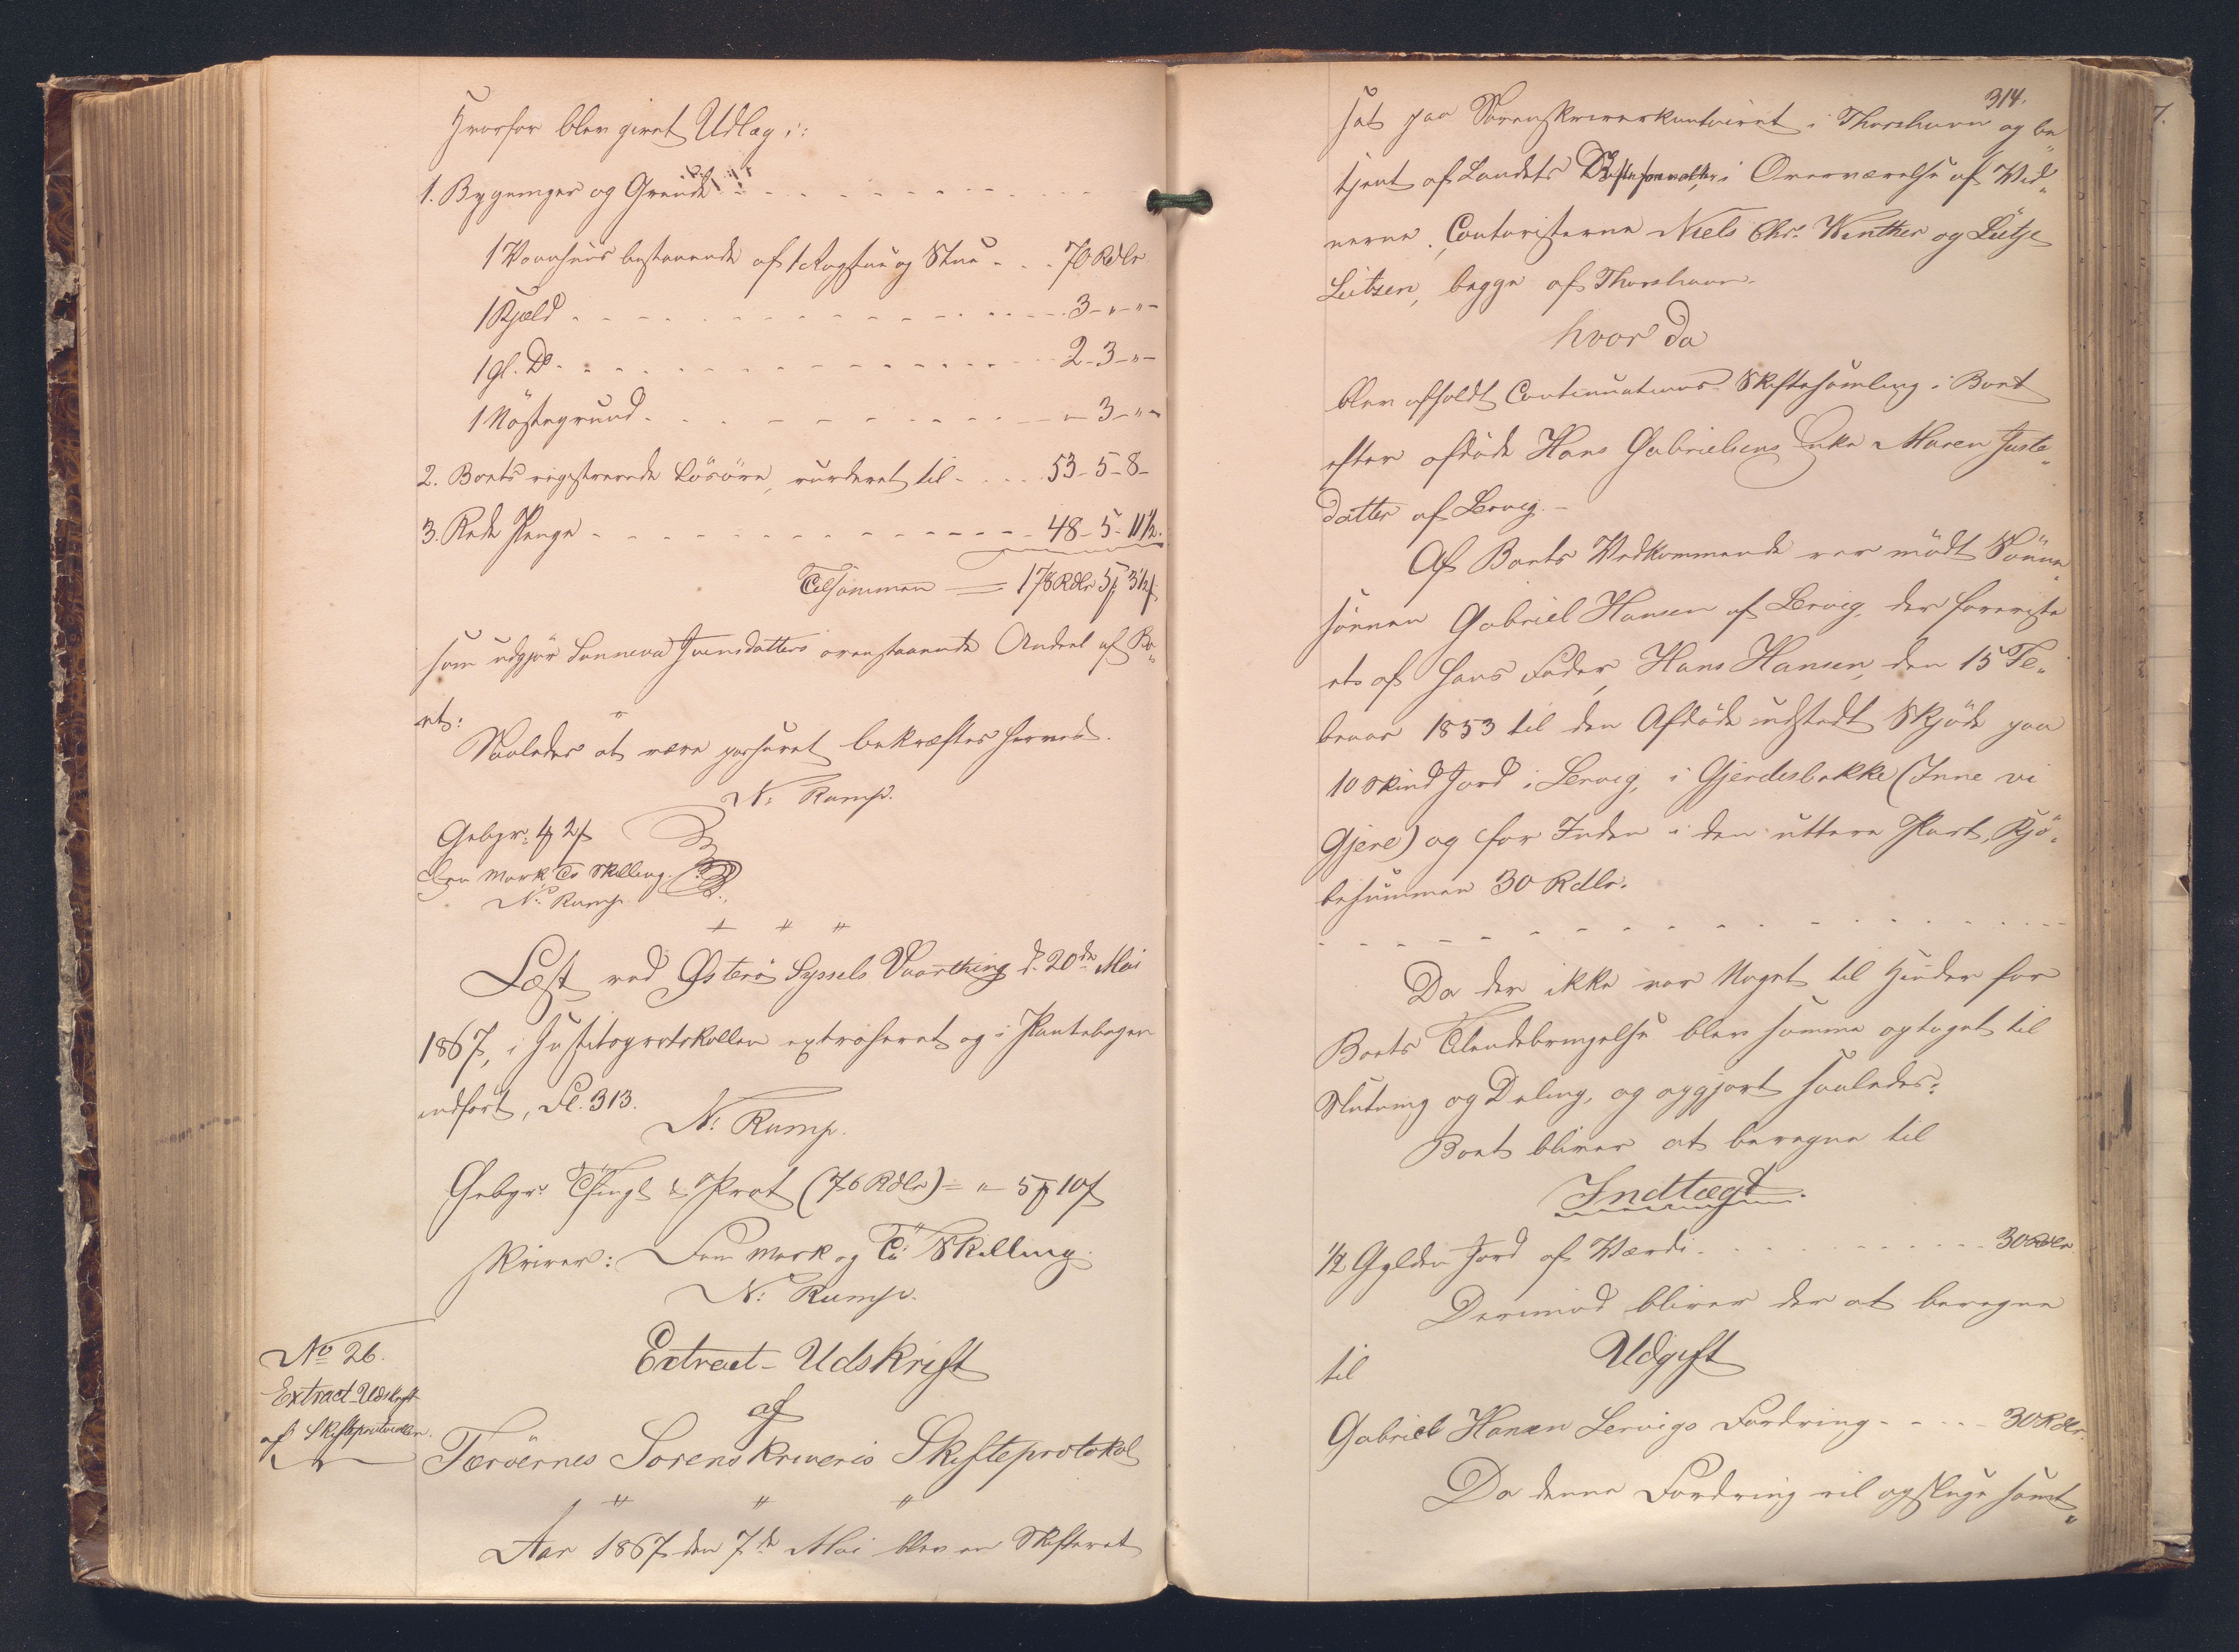 Hvorfor blev givet Udlæg i:
1. Bygninger og Grunde
1 Vaanhuus bestaaende af 1 Rogstue og Stue - - - 70 Rdlr
1 Kjæld - - - 3 - " - " -
1 gl. Do - - - 2 - 3 - " -
1 Nöstegrund - - - " - 3 - " -
2. Boets registrerede Lösöre, vurderet til - - - 53 - 5 - 8 -
3. Rede Penge - - - 48 - 5 - 11½.
Tilsammen = 178 Rdlr 5 ꝳ 3½ ß
som udgjør Sunneva Joensdatters ovenstaaende Andeel af Bo„
et:
Saaledes at være passeret bekræftes herved.
N: Rump.
Gebyr: 4 ꝳ 2 ß
Fire Mark To Skilling.
N: Rump
Læst ved Østerö Syssels Vaarthing d. 20de Mai
1867, i Justitsprotokollen extraheret og i Pantebogen
indfört, Fl. 313.
N: Rump.
Gebyr: Thingl. & Prot (76 Rdlr) = " - 5 ꝳ 10 ß
skriver: Fem Mark og Ti Skilling.
N: Rump.
No 26.
Extract-Udskrift
af Skifteprotocollen.
Extract-Udskrift
af
Færöernes Sorenskriveris Skifteprotokol
Aar 1867 den 7de Mai blev en Skifteret
314.
sat paa Sorenskriverkontoiret i Thorshavn og be„
tjent af Landets Skifteforvalter i Overværelse af Vid„
nerne, Contoristerne Niels Chr. Winther og Lütje
Lützen, begge af Thorshavn.
hvor da
blev afholdt Continuations Skiftesamling i Boet
efter afdöde Hans Gabrielsens Enke Maren Juste„
datter af Lervig. -
Af Boets Vedkommende var mödt Sönne„
sönnen Gabriel Hansen af Lervig, der foreviste
et af hans Fader, Hans Hansen, den 15 Fe„
bruar 1853 til den Afdöde udstedt Skjöde paa
10 Skind Jord i Lervig, i Gjerdesbakke (Inne vi
Gjere) og for Inden i den uttere Part, Kjö„
besummen 30 Rdlr.
Da der ikke var Noget til Hinder for
Boets Tilendebringelse blev samme optaget til
Slutning og Deling, og opgjort saaledes:
Boet bliver at beregne til
Indtægt.
½ Gylden Jord af Værdi - - - 30 Rdlr
Derimod bliver der at beregne
til
Udgift
Gabriel Hansen Lervigs Fordring - - - 30 Rdlr.
Da denne Fordring vil opsluge samt„